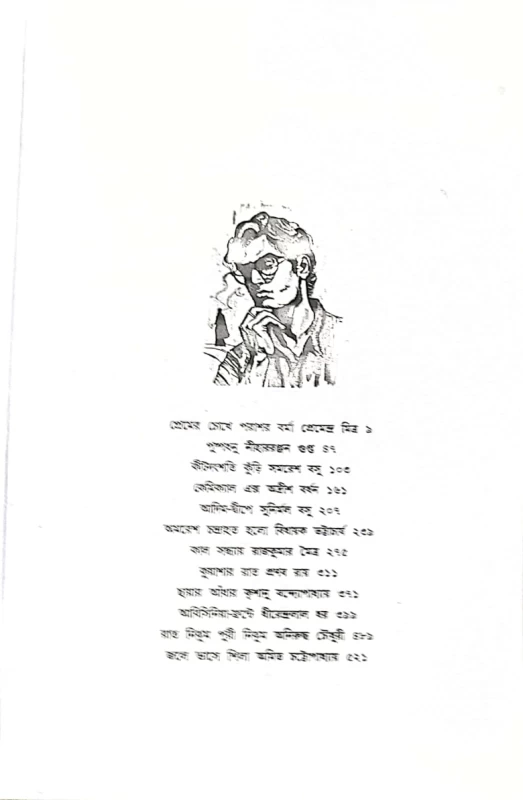 প্রেমের চোখে পরাশর বর্মা প্রেমেন্দ্র মিত্র ৯
নীহাররঞ্জন গুপ্ত ৪৭
কীটদংশিত কুঁড়ি সমরেশ বসু ১০৩
কেমিক্যাল এক্স অদ্রীশ বর্ধন ১৬১
আদিম-দ্বীপে সুনির্মল বসু ২০৭
অমরেশ চন্দ্রাহত হলো বিধায়ক ভট্টাচার্য ২৩৯
কাল সন্ধ্যায় রাজকুমার মৈত্র ২৭৫
কুয়াশার রাত প্রণব রায় ৩১১
ছায়ার আঁধার কৃশানু বন্দ্যোপাধ্যায় ৩৭১
আবিসিনিয়া-ফ্রন্টে ধীরেন্দ্রলাল ধর ৩৯৯
রাত নিঝুম পুরী নিঝুম অনিরুদ্ধ চৌধুরী ৪৮৯
জলে ভাসে শিলা অমিত চট্টোপাধ্যায় ৫২১